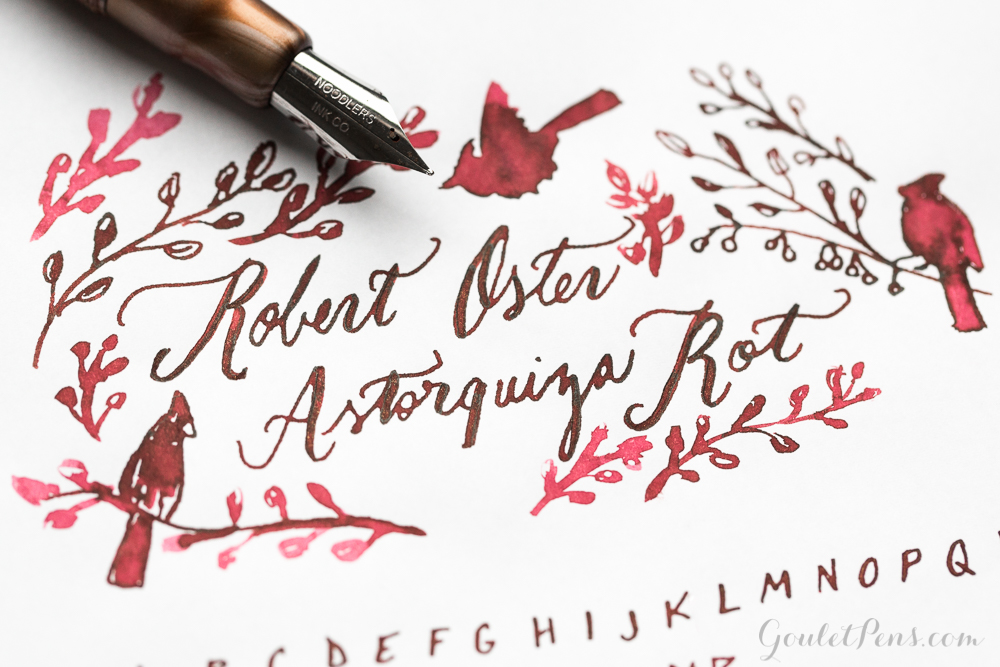 NOODLERS
INK CO
Robert Oster
Astorquiza Rot
C D E F G H I J K L M N O P Q
GouletPens.com